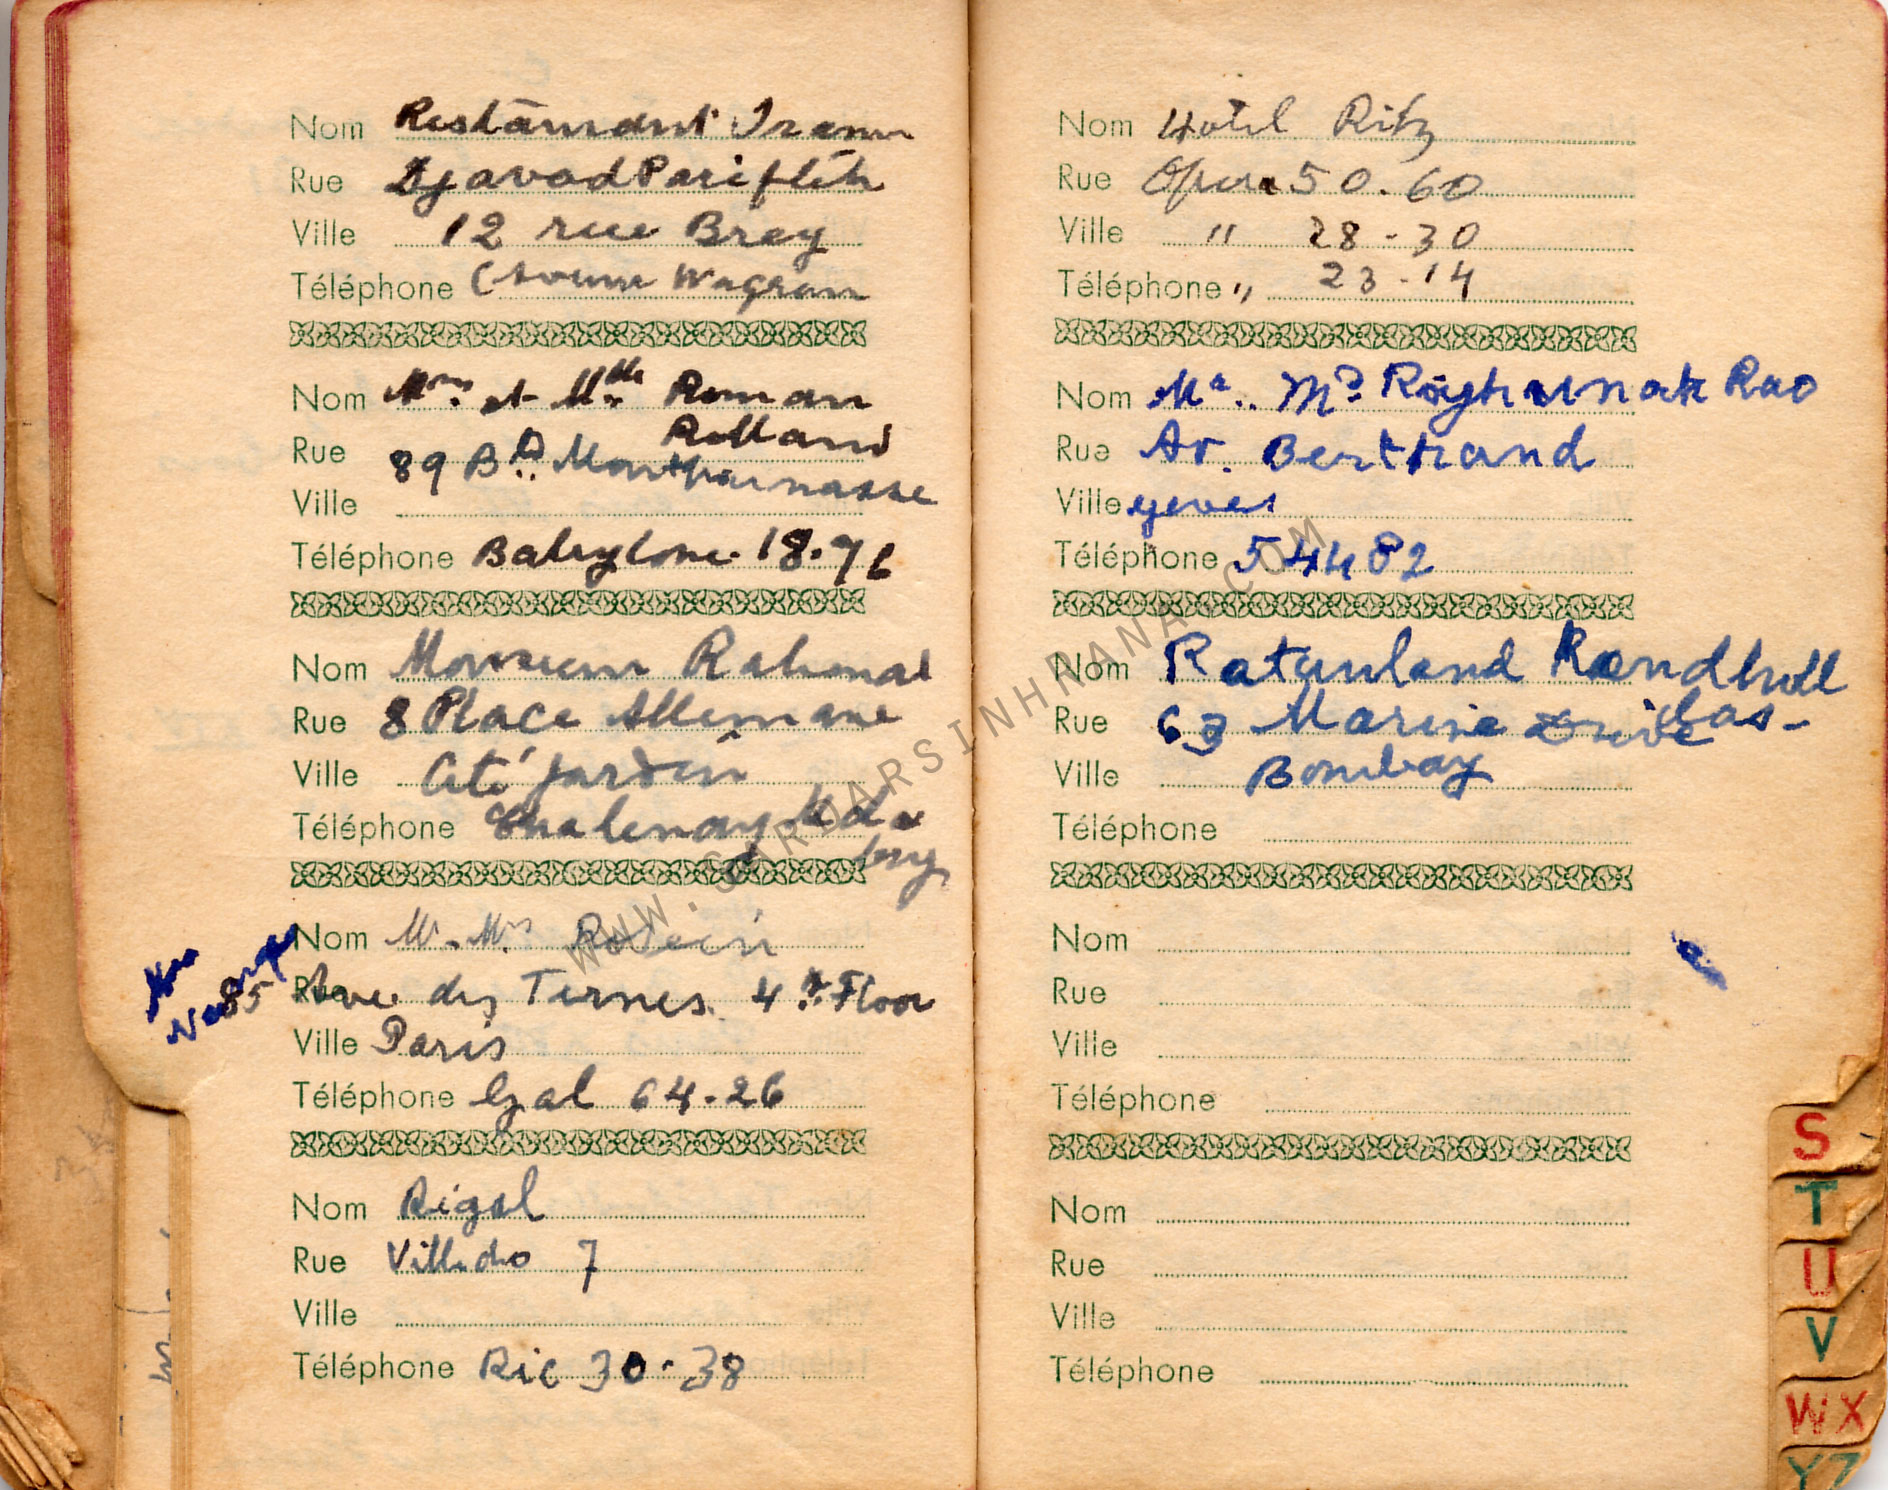 Nom Restaurant Iranien
Rue Djavad Pariflékr
Ville 12 rue Brey
Téléphone (Avenue Wagram
Nom Mme et Mlle Roman
Rolland
Rue 89 Bd. Montparnasse
Ville
Téléphone Babylone. 18.76
Nom Monsieur Rahmat
Rue 8 Place Allemane
Ville Cité Jardin
Téléphone Chatenay
Nom M. Mrs Rosein
Rue 85 Ave des Ternes. 4th Floor
Ville Paris
Téléphone Gal 64-26
Nom Rigal
Rue Villedo 7
Ville
Téléphone Ric 30-38
Nom Hotel Ritz
Rue Opera 50.60
Ville " 28-30
Téléphone " 23-14
Nom Rao
Rue Av. Bertrand
Ville
Téléphone 54482
Nom
Rue 63 Marine Drive
Ville Bombay
Téléphone
Nom
Rue
Ville
Téléphone
Nom
Rue
Ville
Téléphone
S
T
U
V
WX
YZ
WWW.SARDARSINHRANA.COM